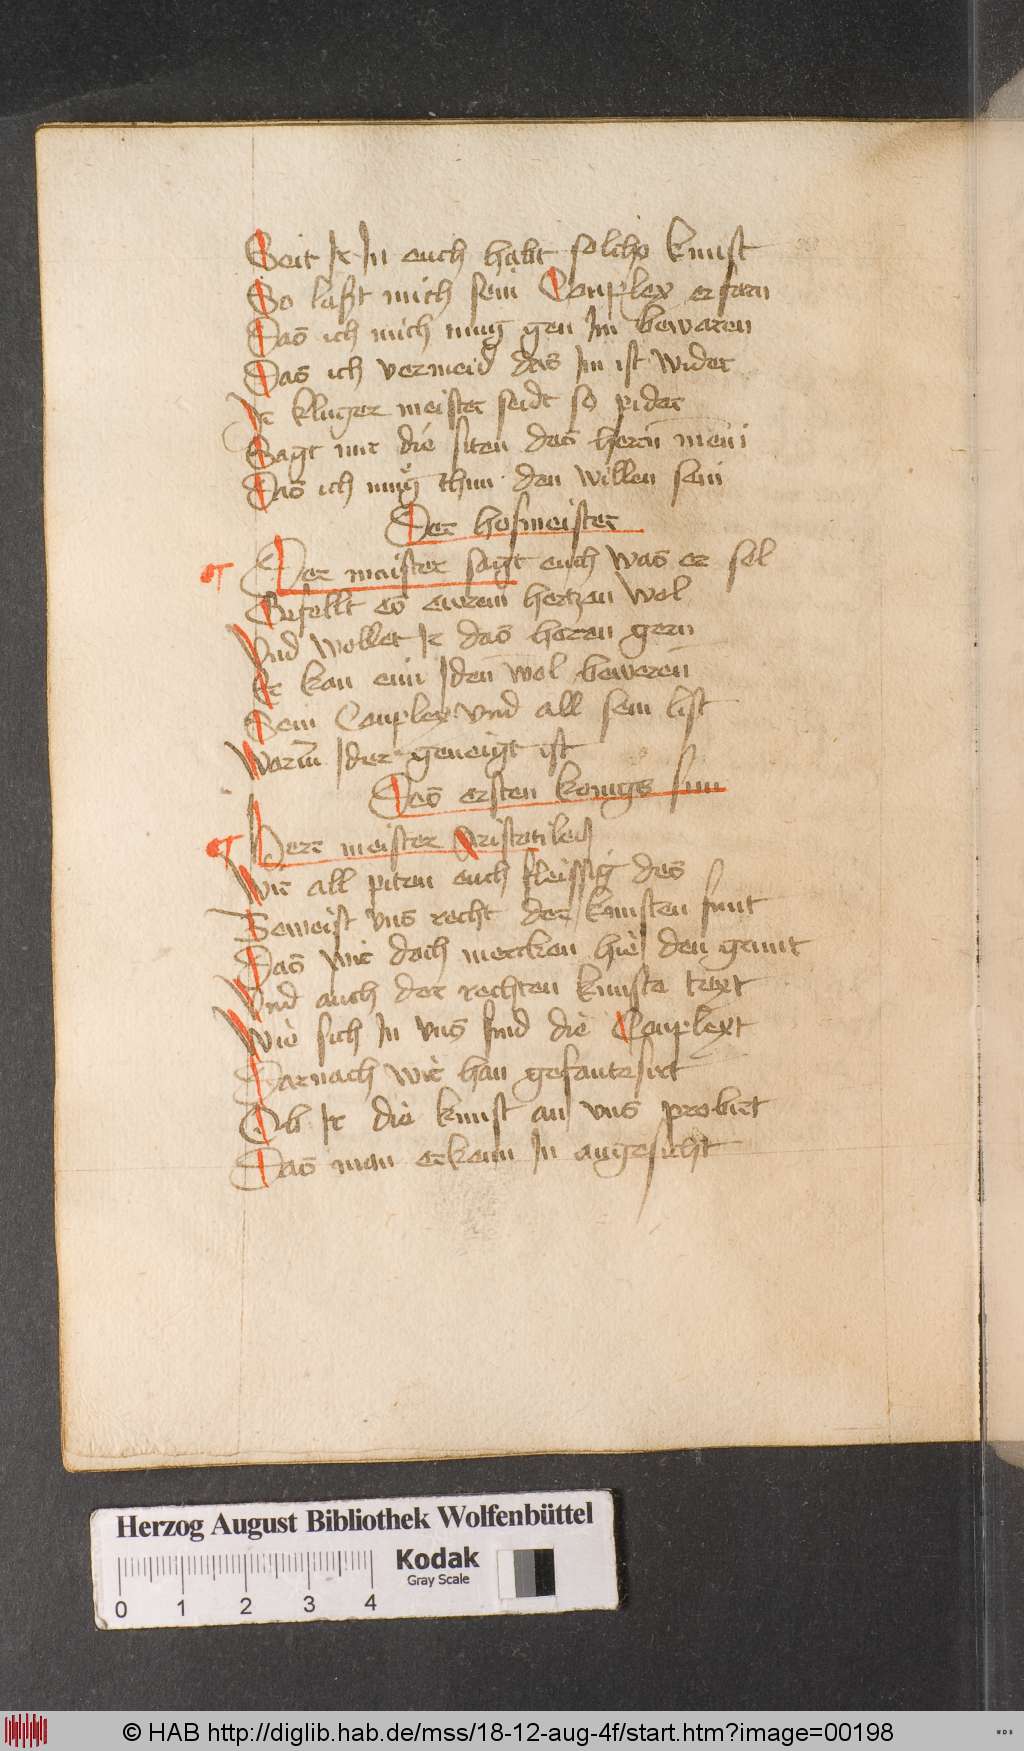 Seit Ir In euch habt solche kunst
So laßt mich sein Conplex erfarn
Das ich mich mug gen Im bewaren
Das ich vermeid das Im ist wider
Ir kluger meister seidt so pider
Sagt mir die siten des hern mein
Das ich mug thun den willen sein
Der hofmeister
Der maister sagt euch was er sol
Gefellt es eurem hertzen wol
Vnd wollet Ir das horen gern
Er kan ein Iden wol beweren
Sein Conplex vnd all sein list
Warin Ider geneigt ist
Des ersten konigs sun
Herr meister Aristotiles
Wir all piten euch fleissig des
Beweist vns recht der kunsten funt
Das wir doch mercken hie den grunt
Vnd auch der rechten kunste text
Wie sich In vns sind die Conplext
Darnach wir han gefantesirt
Ob Ir die kunst an vns probirt
Das man erkenn In angesicht
Herzog August Bibliothek Wolfenbüttel
Kodak
Gray Scale
0 1 2 3 4
© HAB http://diglib.hab.de/mss/18-12-aug-4f/start.htm?image=00198
WDB